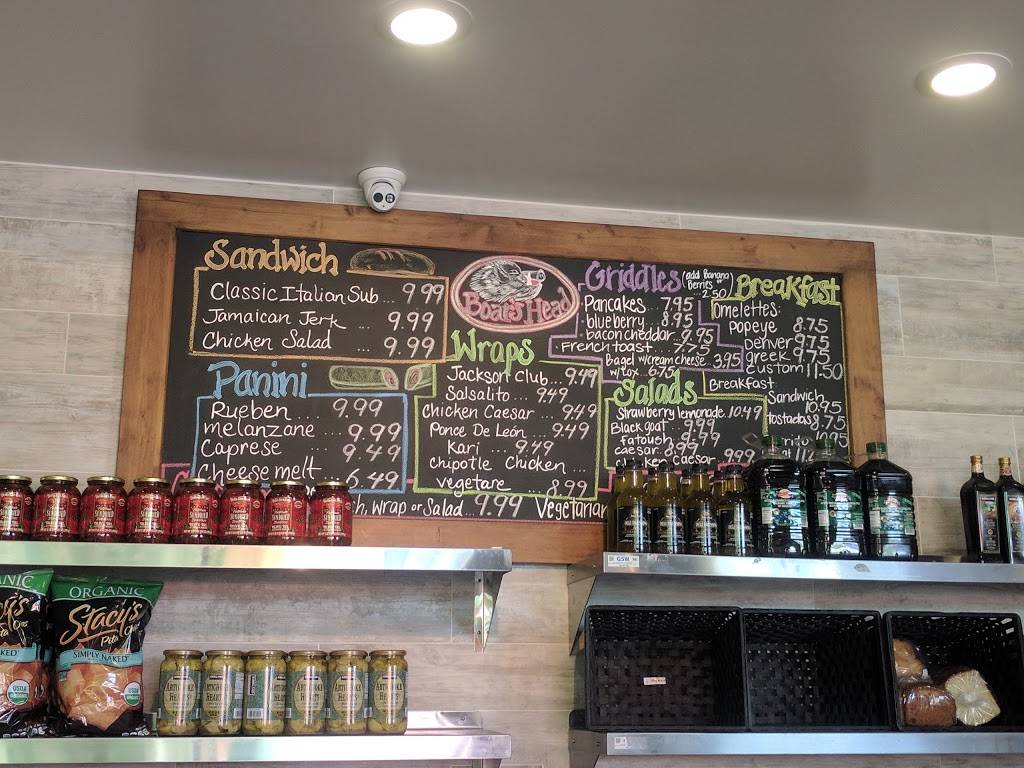 Sandwich
Classic Italian Sub ... 9.99
Jamaican Jerk ... 9.99
Chicken Salad ... 9.99
Panini
Rueben ... 9.99
melanzane ... 9.99
Caprese ... 9.49
Cheese melt 6.49
Boar's Head
Wraps
Jackson Club ... 9.49
Salsalito ... 9.49
Chicken Caesar ... 9.49
Ponce De León ... 9.49
Kari ... 9.49
Chipotle Chicken ...
vegetare ... 8.99
Wrap or Salad ... 9.99 Vegetarian
Griddles (add Banana
Berries
... 2.50
Pancakes 7.95
blueberry ... 8.95
bacon cheddar 9.95
French toast ... 7.75
Bagel w/cream cheese 3.95
w/Lox 6.75
Salads
Strawberry lemonade 10.49
Black goat 9.99
fatoush 9.99
caesar 8.99
caesar 9.99
Breakfast
omelettes:
Popeye 8.75
Denver 9.75
greek 9.75
custom 11.50
Breakfast
Sandwich
10.95
tostadas 8.75
ORGANIC
Stacy's
Pita
SIMPLY NAKED
USDA
ORGANIC
ARTICHOKE